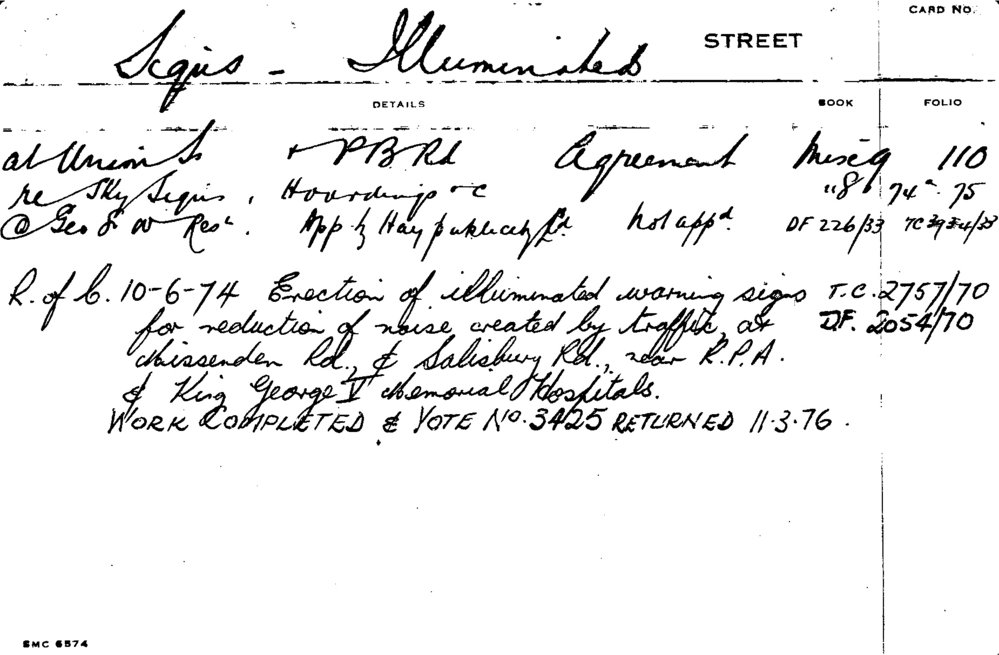 CARD NO.
Signs - Illuminated STREET
DETAILS BOOK FOLIO
at Union St & P B Rd Agreement Misc 9 110
re Sky Signs, Hoardings &c "8 74 & 75
@ Geo St W Res. App by Hay publicity Ld. not appd. DF 226/33 TC /33
R. of C. 10-6-74 Erection of illuminated warning signs T.C. 2757/70
for reduction of noise created by traffic, at DF. 2054/70
Missenden Rd., & Salisbury Rd., near R.P.A.
& King George V Memorial Hospitals.
WORK COMPLETED & VOTE NO. 3425 RETURNED 11.3.76.
SMC 6574